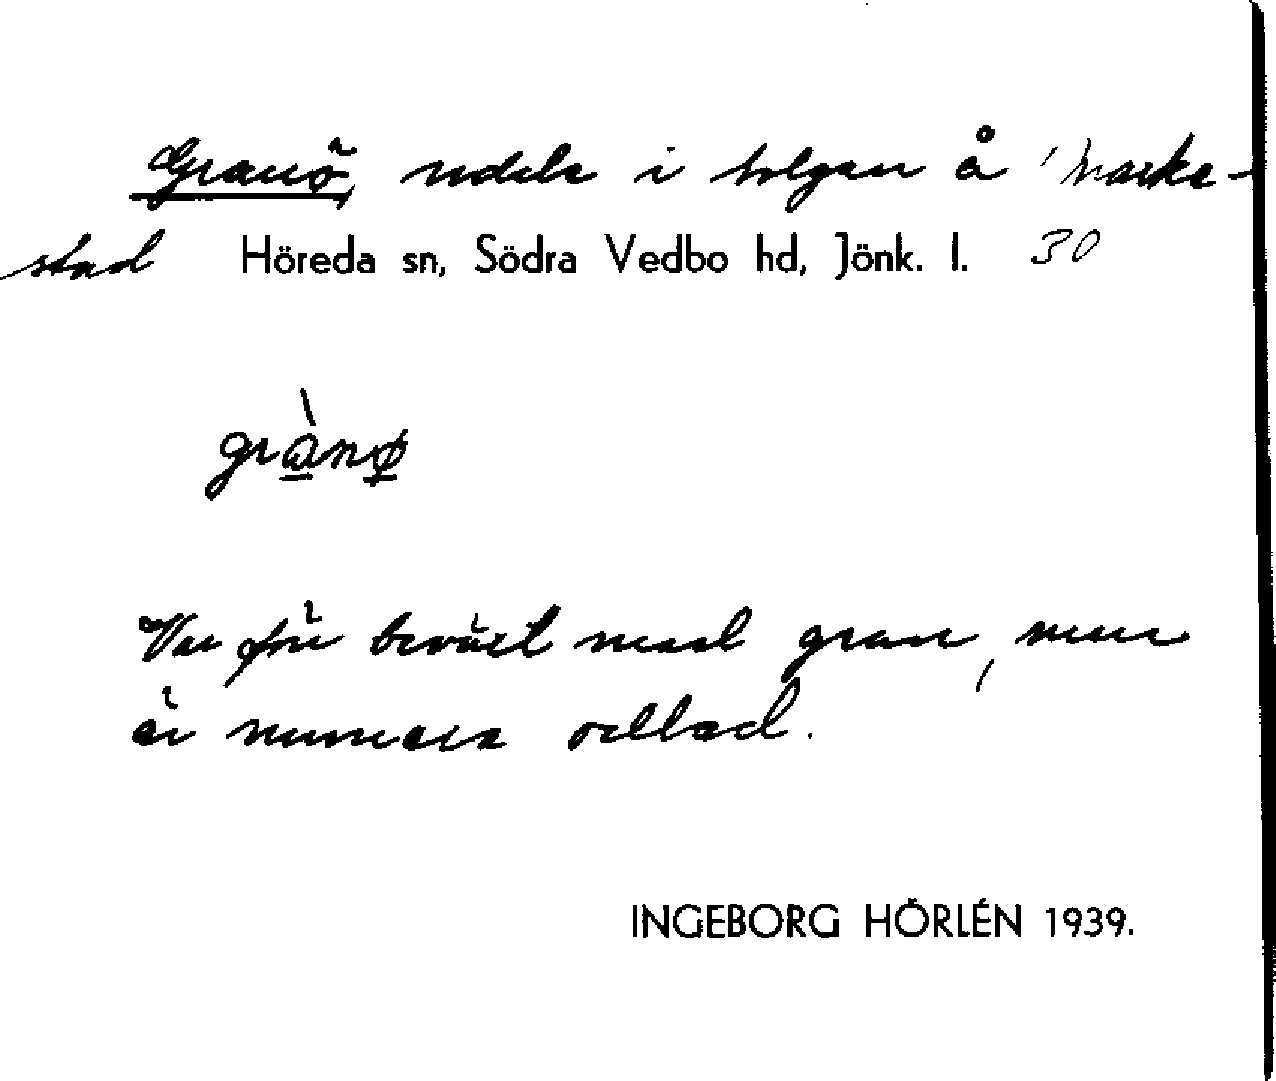 Granö, udde i Solgen å Marke-
stad Höreda sn, Södra Vedbo hd, Jönk. l. 30
grànø
Var förr bevuxet med gran, men
är numera odlad.
INGEBORG HÖRLÉN 1939.